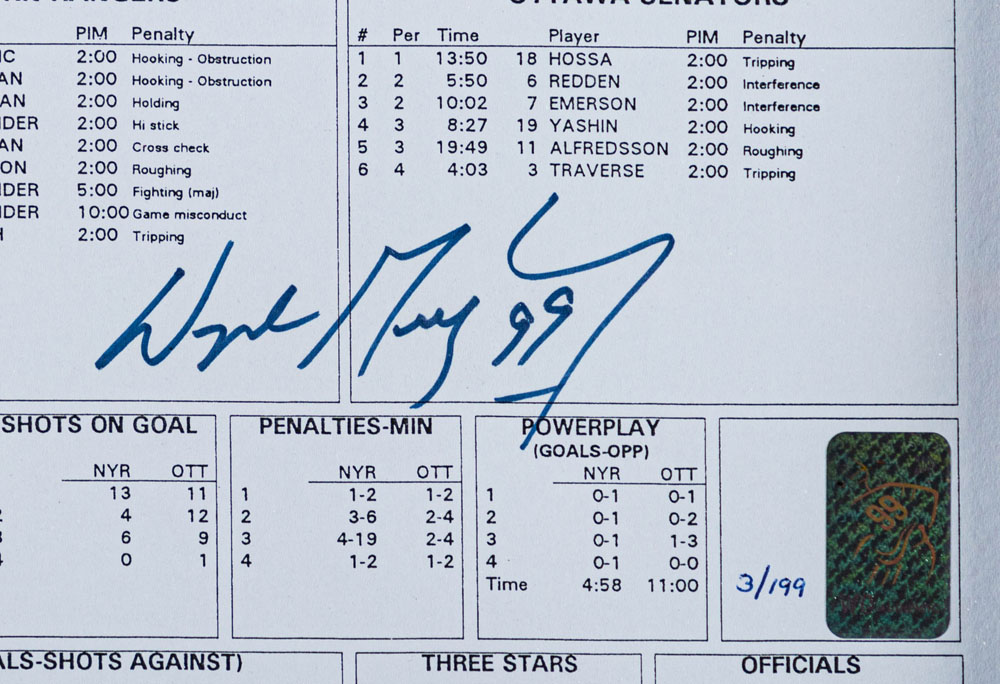 RANGERS
PIM Penalty
IC 2:00 Hooking - Obstruction
AN 2:00 Hooking - Obstruction
AN 2:00 Holding
IDER 2:00 Hi stick
AN 2:00 Cross check
ON 2:00 Roughing
IDER 5:00 Fighting (maj)
IDER 10:00 Game misconduct
2:00 Tripping
OTTAWA SENATORS
# Per Time Player PIM Penalty
1 1 13:50 18 HOSSA 2:00 Tripping
2 2 5:50 6 REDDEN 2:00 Interference
3 2 10:02 7 EMERSON 2:00 Interference
4 3 8:27 19 YASHIN 2:00 Hooking
5 3 19:49 11 ALFREDSSON 2:00 Roughing
6 4 4:03 3 TRAVERSE 2:00 Tripping
99
SHOTS ON GOAL
NYR OTT
13 11
4 12
6 9
0 1
PENALTIES-MIN
NYR OTT
1 1-2 1-2
2 3-6 2-4
3 4-19 2-4
4 1-2 1-2
POWERPLAY
(GOALS-OPP)
NYR OTT
1 0-1 0-1
2 0-1 0-2
3 0-1 1-3
4 0-1 0-0
Time 4:58 11:00
3/199
99
ALS-SHOTS AGAINST)
THREE STARS
OFFICIALS